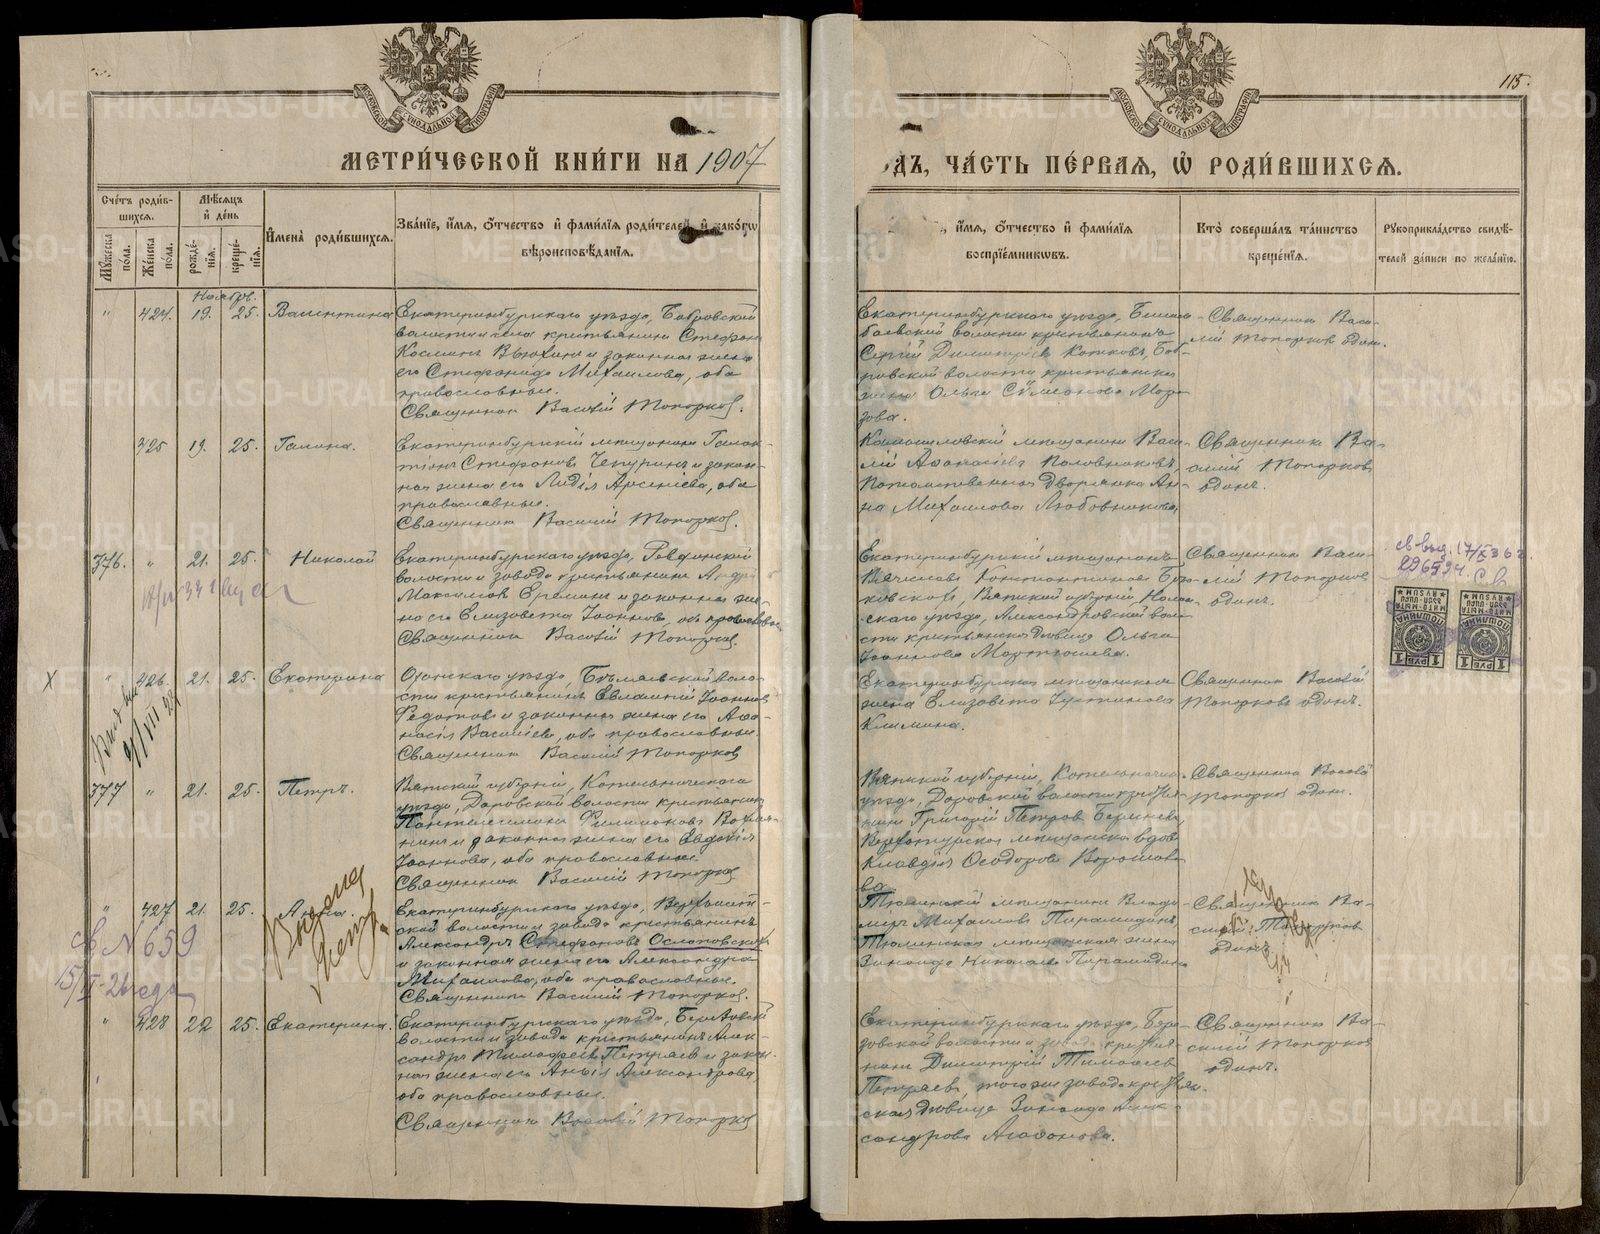 115.
МЕТРИ́ЧЕСКОЙ КНИ́ГИ НА 1907
ДЪ, ЧА́СТЬ ПЕ́РВАЯ, Ѡ РОДИ́ВШИХСЯ.
Сче́тъ роди́в-
шихся.
Му́жеска по́ла.
Же́нска по́ла.
Мѣ́сяцъ и де́нь
рожде́-
нія.
креще́-
нія.
Имена̀ роди́вшихся.
Зва́ніе, и́мя, о́тчество и фами́лія роди́телей, и како́гѡ
вѣроисповѣ́данія.
и́мя, о́тчество и фами́лія
воспріе́мниковъ.
Кто̀ соверша́лъ та́инство
креще́нія.
Рукоприкла́дство свидѣ́-
телей за́писи по жела́нію.
Ноябрь.
" 424. 19. 25. Валентина
Екатеринбургскаго уѣзда, Бобровской
волости и села крестьянинъ Стефанъ
Косминъ Вьюхинъ и законная жена
его Стефанида Михаилова, оба
православные.
Священникъ Василій Топорковъ.
Екатеринбургскаго уѣзда, Билим-
баевской волости крестьянинъ
Сергій Димитріевъ Котковъ, Боб-
ровской волости крестьянская
жена Ольга Сѵмеонова Моро-
зова.
Священникъ Васи-
лій Топорковъ одинъ.
425 19. 25. Галина.
Екатеринбургскій мѣщанинъ Галак-
тіонъ Стефановъ Чепуринъ и закон-
ная жена его Лидія Арсеніева, оба
православные.
Священникъ Василій Топорковъ.
Камышловскій мѣщанинъ Васи-
лій Аѳанасіевъ Половниковъ,
Потомственная Дворянка Ан-
на Михаилова Любовникова.
Священникъ Ва-
силій Топорковъ
одинъ.
376. " 21. 25. Николай
Екатеринбургскаго уѣзда, Ревдинской
волости и завода крестьянинъ Андрей
Максимовъ Ереминъ и законная же-
на его Елизавета Іоаннова, оба православные.
Священникъ Василій Топорковъ.
Екатеринбургскій мѣщанинъ
Вячеславъ Константиновъ
Вятской губерніи, Нолин-
скаго уѣзда, Александровской воло-
сти крестьянская дѣвица Ольга
Іоаннова
Священникъ Васи-
лій Топорковъ
одинъ.
МИТО-МЫТА
ПОШЛИНА
1 РУБ 1
МИТО-МЫТА
ПОШЛИНА
1 РУБ 1
X " 426. 21. 25. Екатерина
Осинскаго уѣзда, воло-
сти крестьянинъ Евгеній Іоанновъ
Федотовъ и законная жена его Аѳа-
насія Васильева, оба православные.
Священникъ Василій Топорковъ
Екатеринбургская мѣщанская
жена Елизавета Іустинова
Климина.
Священникъ Василій
Топорковъ одинъ.
377 " 21. 25. Петръ.
Вятской губерніи, Котельническаго
уѣзда, Даровской волости крестьянинъ
Пантелеимонъ Филимоновъ
и законная жена его Евдокія
Іоаннова, оба православные.
Священникъ Василій Топорковъ
Вятской губерніи, Котельнич.
уѣзда, Даровской волости крестья-
нинъ Григорій Петровъ
Верхотурская мѣщанская вдова
Клавдія Ѳеодорова Ворошило-
ва.
Священникъ Василій
Топорковъ одинъ.
" 427 21. 25. Анна.
св N 659
Выдана
Екатеринбургскаго уѣзда, Верхъисет-
ской волости и завода крестьянинъ
Александръ Стефановъ Ослоповскій
и законная жена его Александра
Михаилова, оба православные.
Священникъ Василій Топорковъ.
Тюменскій мѣщанинъ Влади-
міръ Михаиловъ Пирамидинъ,
Тюменская мѣщанская жена
Зинаида Николаева Пирамидина
Священникъ Ва-
силій Топорковъ
одинъ
" 428 22 25. Екатерина.
Екатеринбургскаго уѣзда, Березовской
волости и завода крестьянинъ Алек-
сандръ Тимоѳеевъ Петряевъ и закон-
ная жена его Анна Александрова,
оба православные.
Священникъ Василій Топорковъ
Екатеринбургскаго уѣзда, Бере-
зовской волости и завода крестья-
нинъ Димитрій Тимоѳеевъ
Петряевъ, того же завода крестьян-
ская дѣвица Зинаида Алек-
сандрова Агаѳонова.
Священникъ Ва-
силій Топорковъ
одинъ.